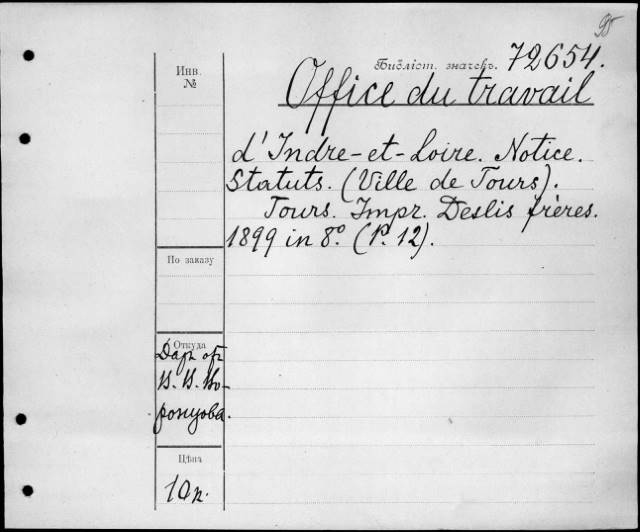 90
Библіот. значекъ. 72654.
Инв. №
Office du travail
d'Indre-et-Loire. Notice.
Statuts. (Ville de Tours).
Tours. Impr. Deslis frères.
1899 in 8° (P. 12).
По заказу
Откуда
Даръ отъ
В. В. Во-
ронцова.
Цѣна
10к.